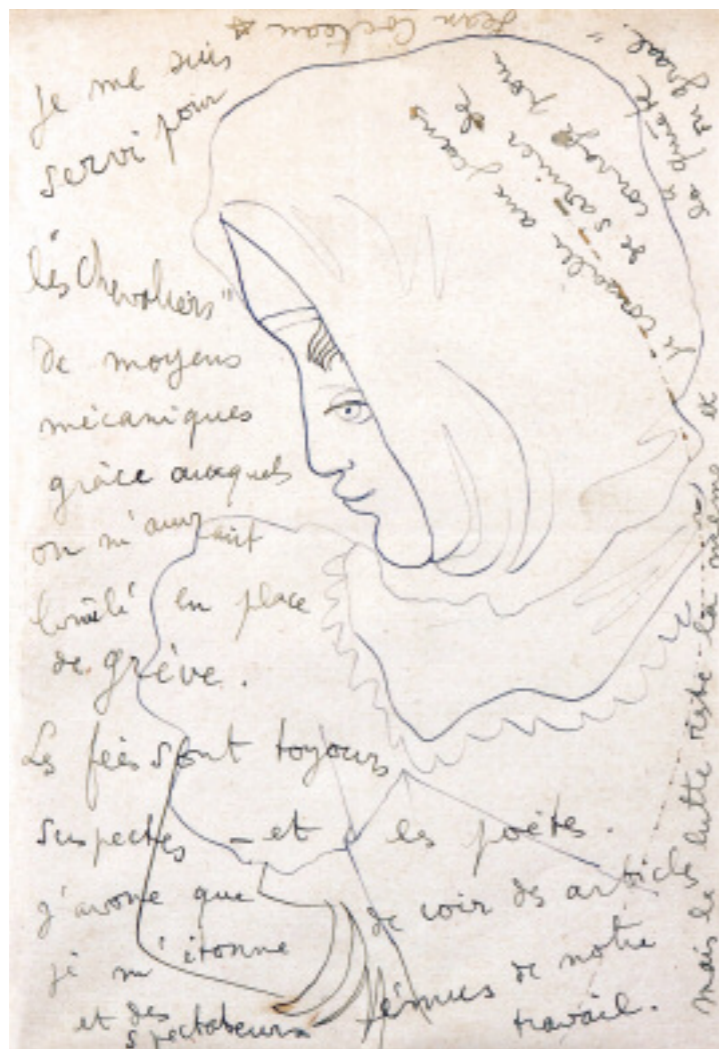 Je me suis
servi pour
les Chevaliers"
de moyens
mécaniques
grâce auxquels
on m'aurait
brûlé en place
de grève.
Les fées sont toujours
suspectes - et les poètes.
j'avoue que
je m'étonne
de voir des articles
et des
spectateurs
émus de notre
travail.
mais la lutte reste la même et
je conseille aux jeans
de
s'armier de
courage pour
la quête
du graal."
Jean Cocteau